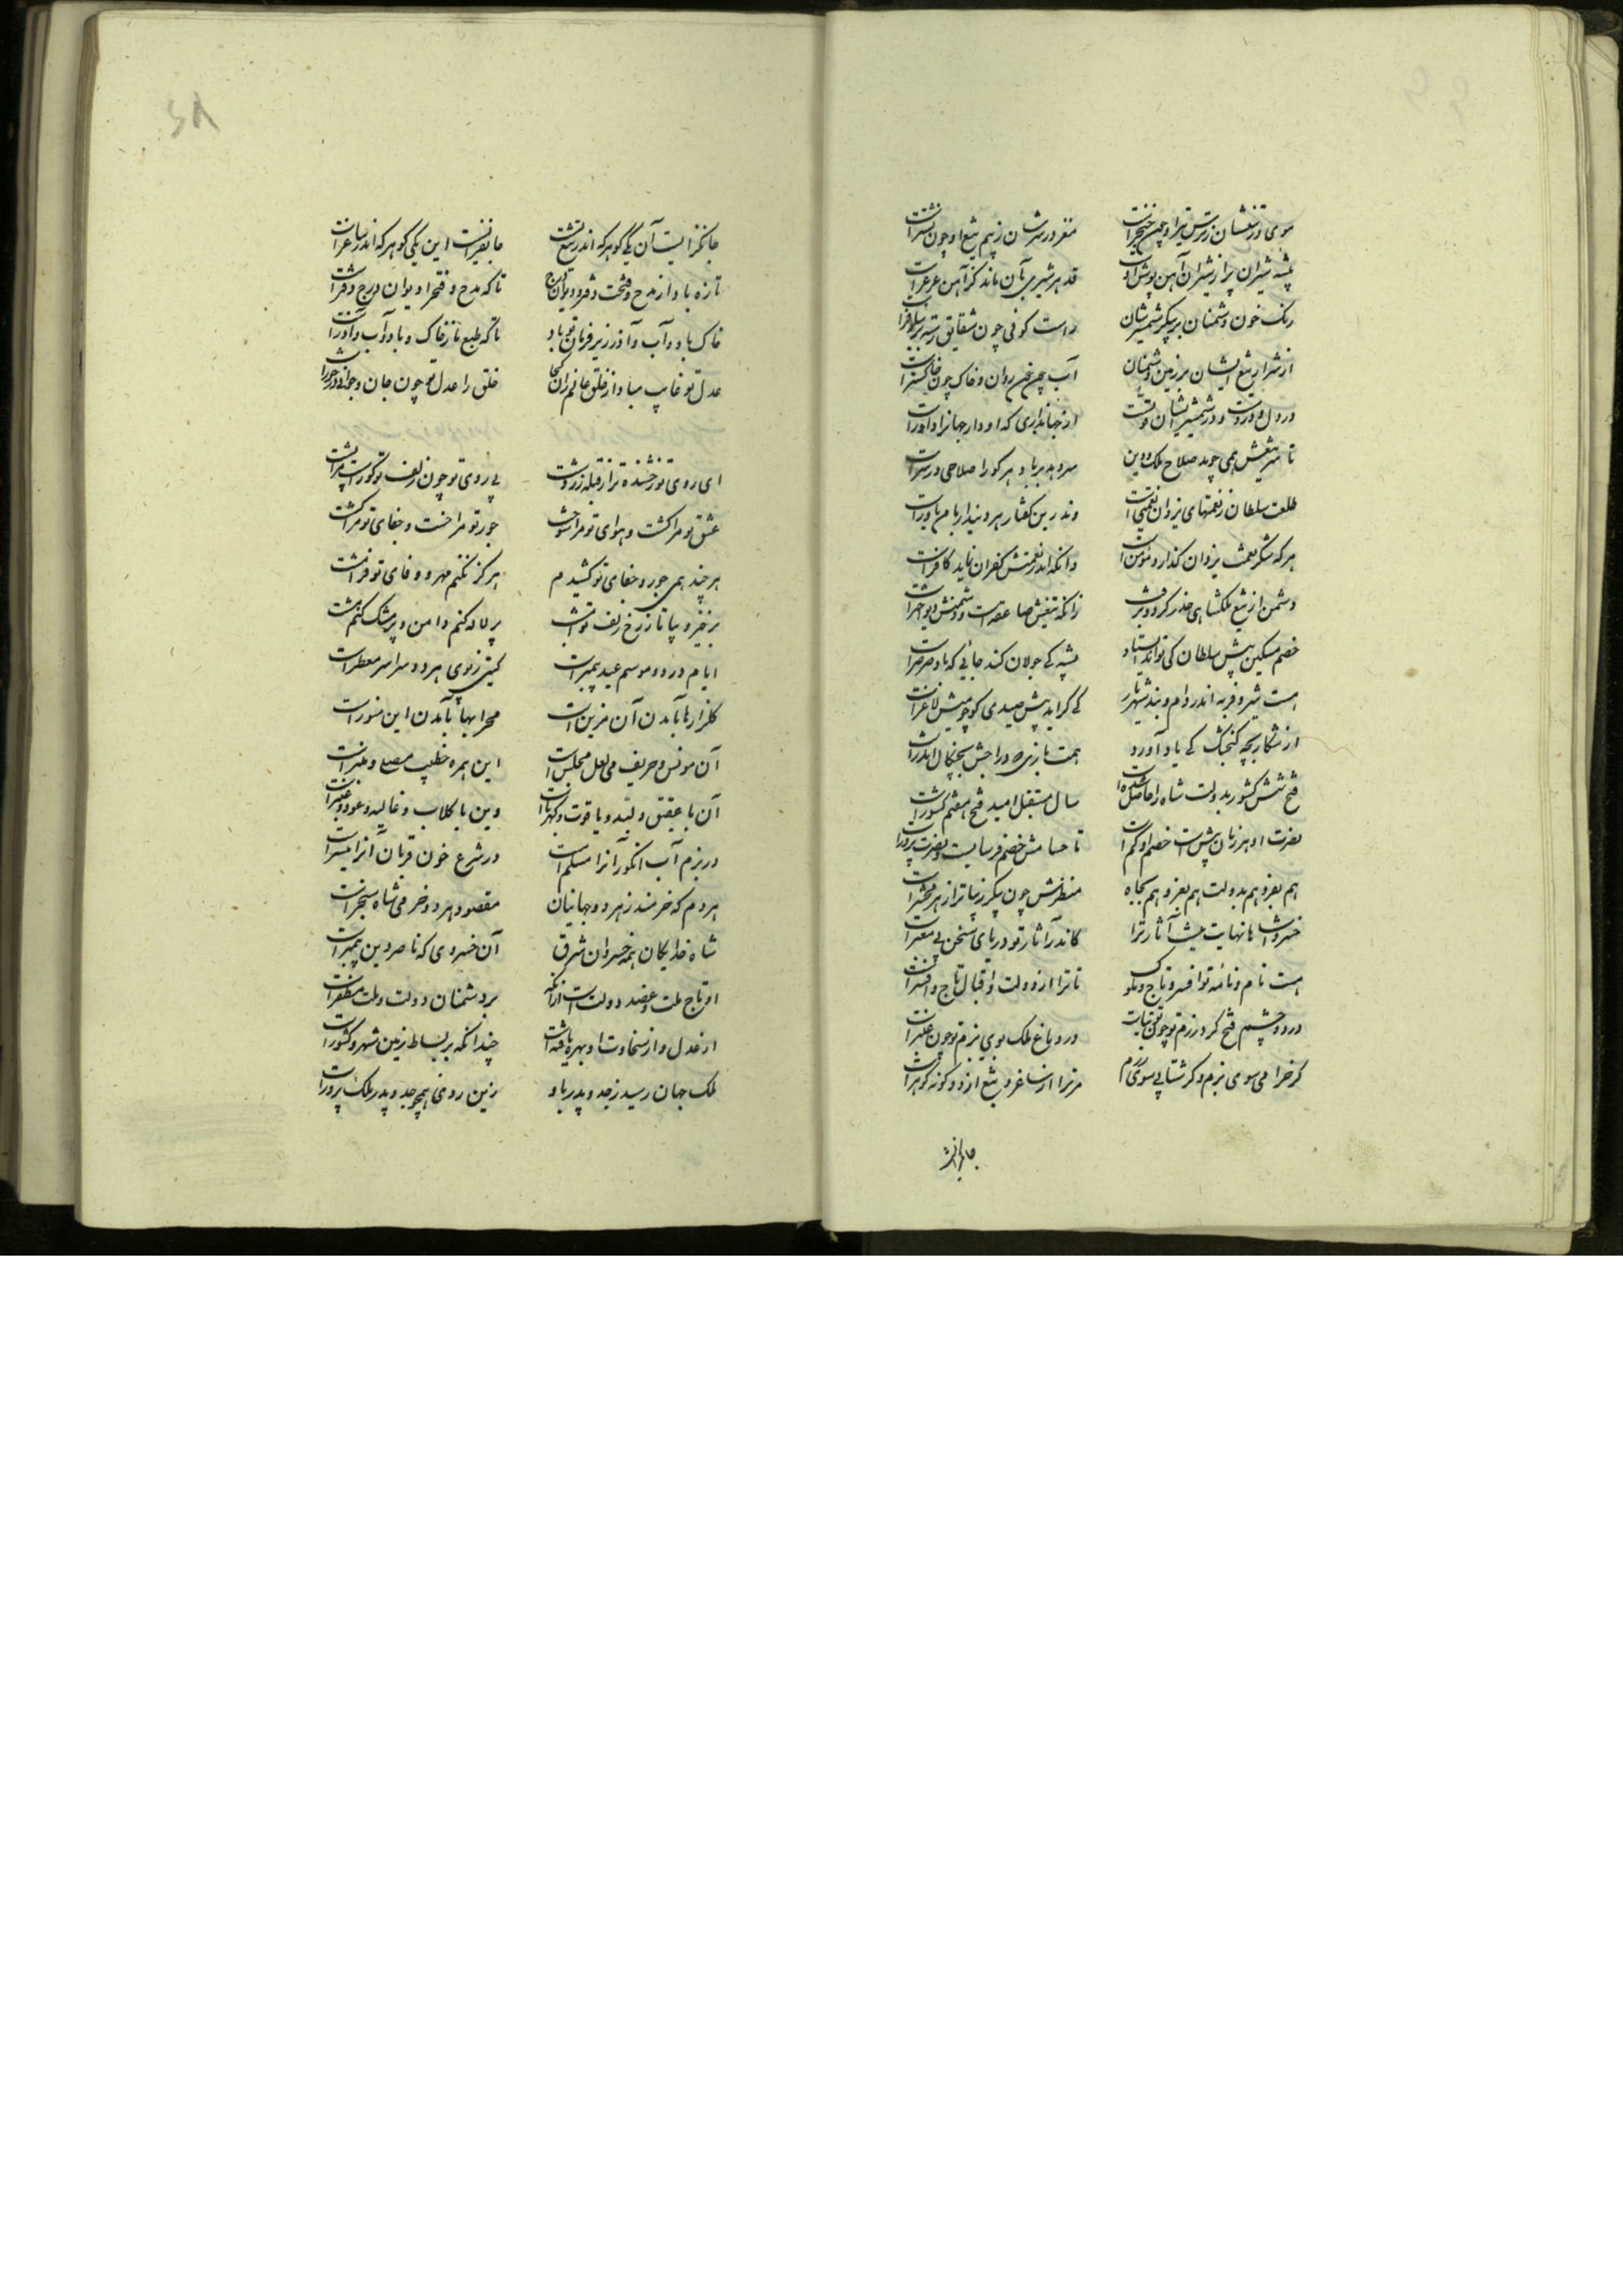 موی در تنشان ز ترس تیر او چون خنجر است	مغز در سرشان ز بیم تیغ او چون نشتر است
بیشه شیران پر از شیران آهن پوش اوست	قد هر شیری بآن ماند کز آهن عرعر است
رنک خون دشمنان بر پیکر شمشیرشان	راست کوئی چون شقایق رسته بر نیلوفر است
از شرار تیغ ایشان بر زمین دشمنان	آب چون خون روان و خاک چون خاکستر است
در دل و در دست و در شمشیرشان قوت	از جهانداری که او دارد جهانرا داور است
تا سر تیغش همی جوید صلاح ملک و دین	سر دهد بر باد هر کو را صلاحی در سر است
طلعت سلطان ز نعمتهای یزدان نعمتی است	وندرین گفتار هر دیندار با من یاور است
هر که شکر نعمت یزدان گذارد مؤمن است	وانکه اندر نعمتش کفران نماید کافر است
دشمن از تیغ ملکشاهی حذر کرد و برفت	زانکه تیغش صاعقه است و دشمنش دیو
خصم مسکین پیش سلطان کی تواند ایستاد	پشه کی جولان کند جائی که باد صرصر است
هست شیر و فربه اندر دام و بند شهریار	کی کراید پیش صیدی کو چو میش لاغر است
از شکار بچه کنجشک کی یاد آورد	همت بازی که دراجش بچنکال اندر است
فتح شش کشور بدولت شاه را حاصل شده است	سال مستقبل امید فتح هفتم کشور است
نصرت او هر زمان پیش است خصم او کم است	تا حسامش خصم فرسایست و نصرت پرور است
هم بعز و هم بدولت هم بعز و هم بجاه	منظرش چون پیکر زیباتر از هر مخبر است
خسروا شاها نهایت نیست آثار ترا	کاندر آثار تو دریای سخن بی معبر است
هست نام و نامه تو افسر و تاج ملوک	تا ترا از دولت و اقبال تاج و افسر است
در دو چشم فتح کرد رزم تو چون توتیاست	در دو باغ ملک بوی بزم تو چون عنبر است
کر خرامی سوی بزم و کر شتابی سوی رزم	مر ترا از ساغر و تیغ از دو کونه کوهر است
جانفزا است
جانفزایست آن یکی گوهر که اندر تیغ تست	جانفزایست این یکی کوهر که اندر ساغر است
تازه باد از مدح و فتحت دفتر و دیوان	تا که مدح و فتح را دیوان و درج و دفتر است
خاک باد و آب و آذر زیر فرمان تو باد	تا که طبع ما ز خاک و باد و آب و آذر است
عدل تو غایب مباد از خلق عالم زان کجا	خلق را عدل تو چون جان و جوانی درخور است
ای روی تو رخشنده تر از قبله زردشت	بی روی تو چون زلف تو کوژ است مرا پشت
عشق تو مرا کشت و هوای تو مرا سوخت	جور تو مرا خست و جفای تو مرا کشت
هر چند همی جور و جفای تو کشیدم	هرکز نکنم مهر و وفای تو فرامشت
برخیز و بیا تا ز رخ و زلف تو امشب	پر لاله کنم دامن و پر مشک کنم مشت
ایام ورد و موسم عید پیمبر است	کیتی ز بوی هر دو سراسر معطر است
کلزارها بآمدن آن مزین است	محرابها بآمدن این منور است
آن مونس و حریف می لعل مجلس است	این همره خطیب مصلی و منبر است
آن با عقیق و لبد و یاقوت و کهرباست	وین با کلاب و غالیه و عود و عنبر است
در بزم آب انکور آنرا مسلم است	در شرع خون قربان آنرا میسر است
هر دم که خرمند ز هر دو جهانیان	مقصود هر دو خرمی شاه سنجر است
شاه خدایکان همه خسروان شرق	آن خسروی که ناصر دین پیمبر است
او تاج ملت و عضد دولت است ازانکه	بر دشمنان دولت و ملت مظفر است
از عدل و از سخاوت او بهره یافته است	چندانکه بر بساط زمین شهر و کشور است
ملک جهان رسید ز جد و پدر باو	زین روی همچو جد و پدر ملک پرور است